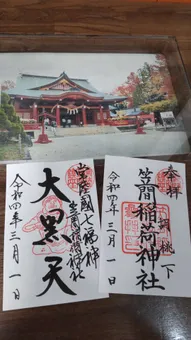 奉拝
胡桃下
笠間稲荷神社
令和四年三月一日
常陸國七福神
笠間稲荷神社
大黒天
令和四年三月一日